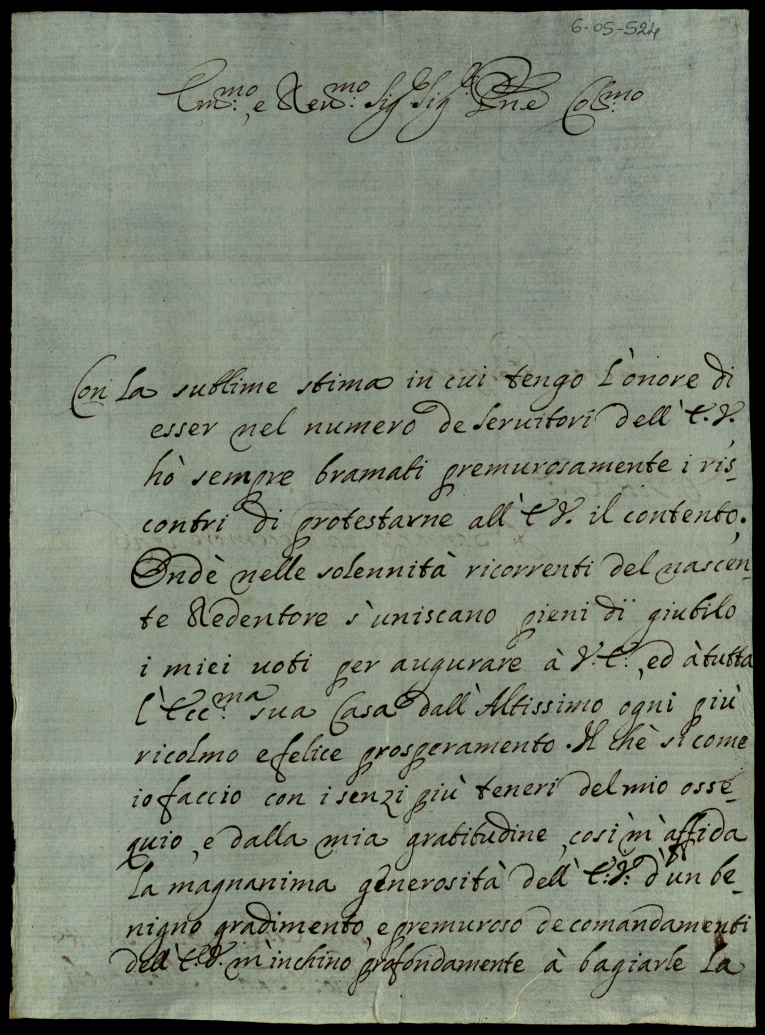 6-05-524
Em.mo e Rev.mo Sig.r Sig.r Pne Col.mo
Con la sublime stima in cui tengo l'onore di
esser nel numero de servitori dell' E.V.
hò sempre bramati premurosamente i ris-
contri di protestarne all' E.V. il contento.
Ondè nelle solennità ricorrenti del nascen-
te Redentore s'uniscano pieni di giubilo
i miei uoti per augurare à V.E., ed à tutta
l'Ecc.ma sua Casa dall'Altissimo ogni più
ricolmo e felice prosperamento. Il chè si come
io faccio con i senzi più teneri del mio osse-
quio, e dalla mia gratitudine, cosi m'affida
la magnanima generosità dell' E.V. d'un be-
nigno gradimento e premuroso de comandamenti
dell' E.V. m'inchino profondamente à bagiarle la